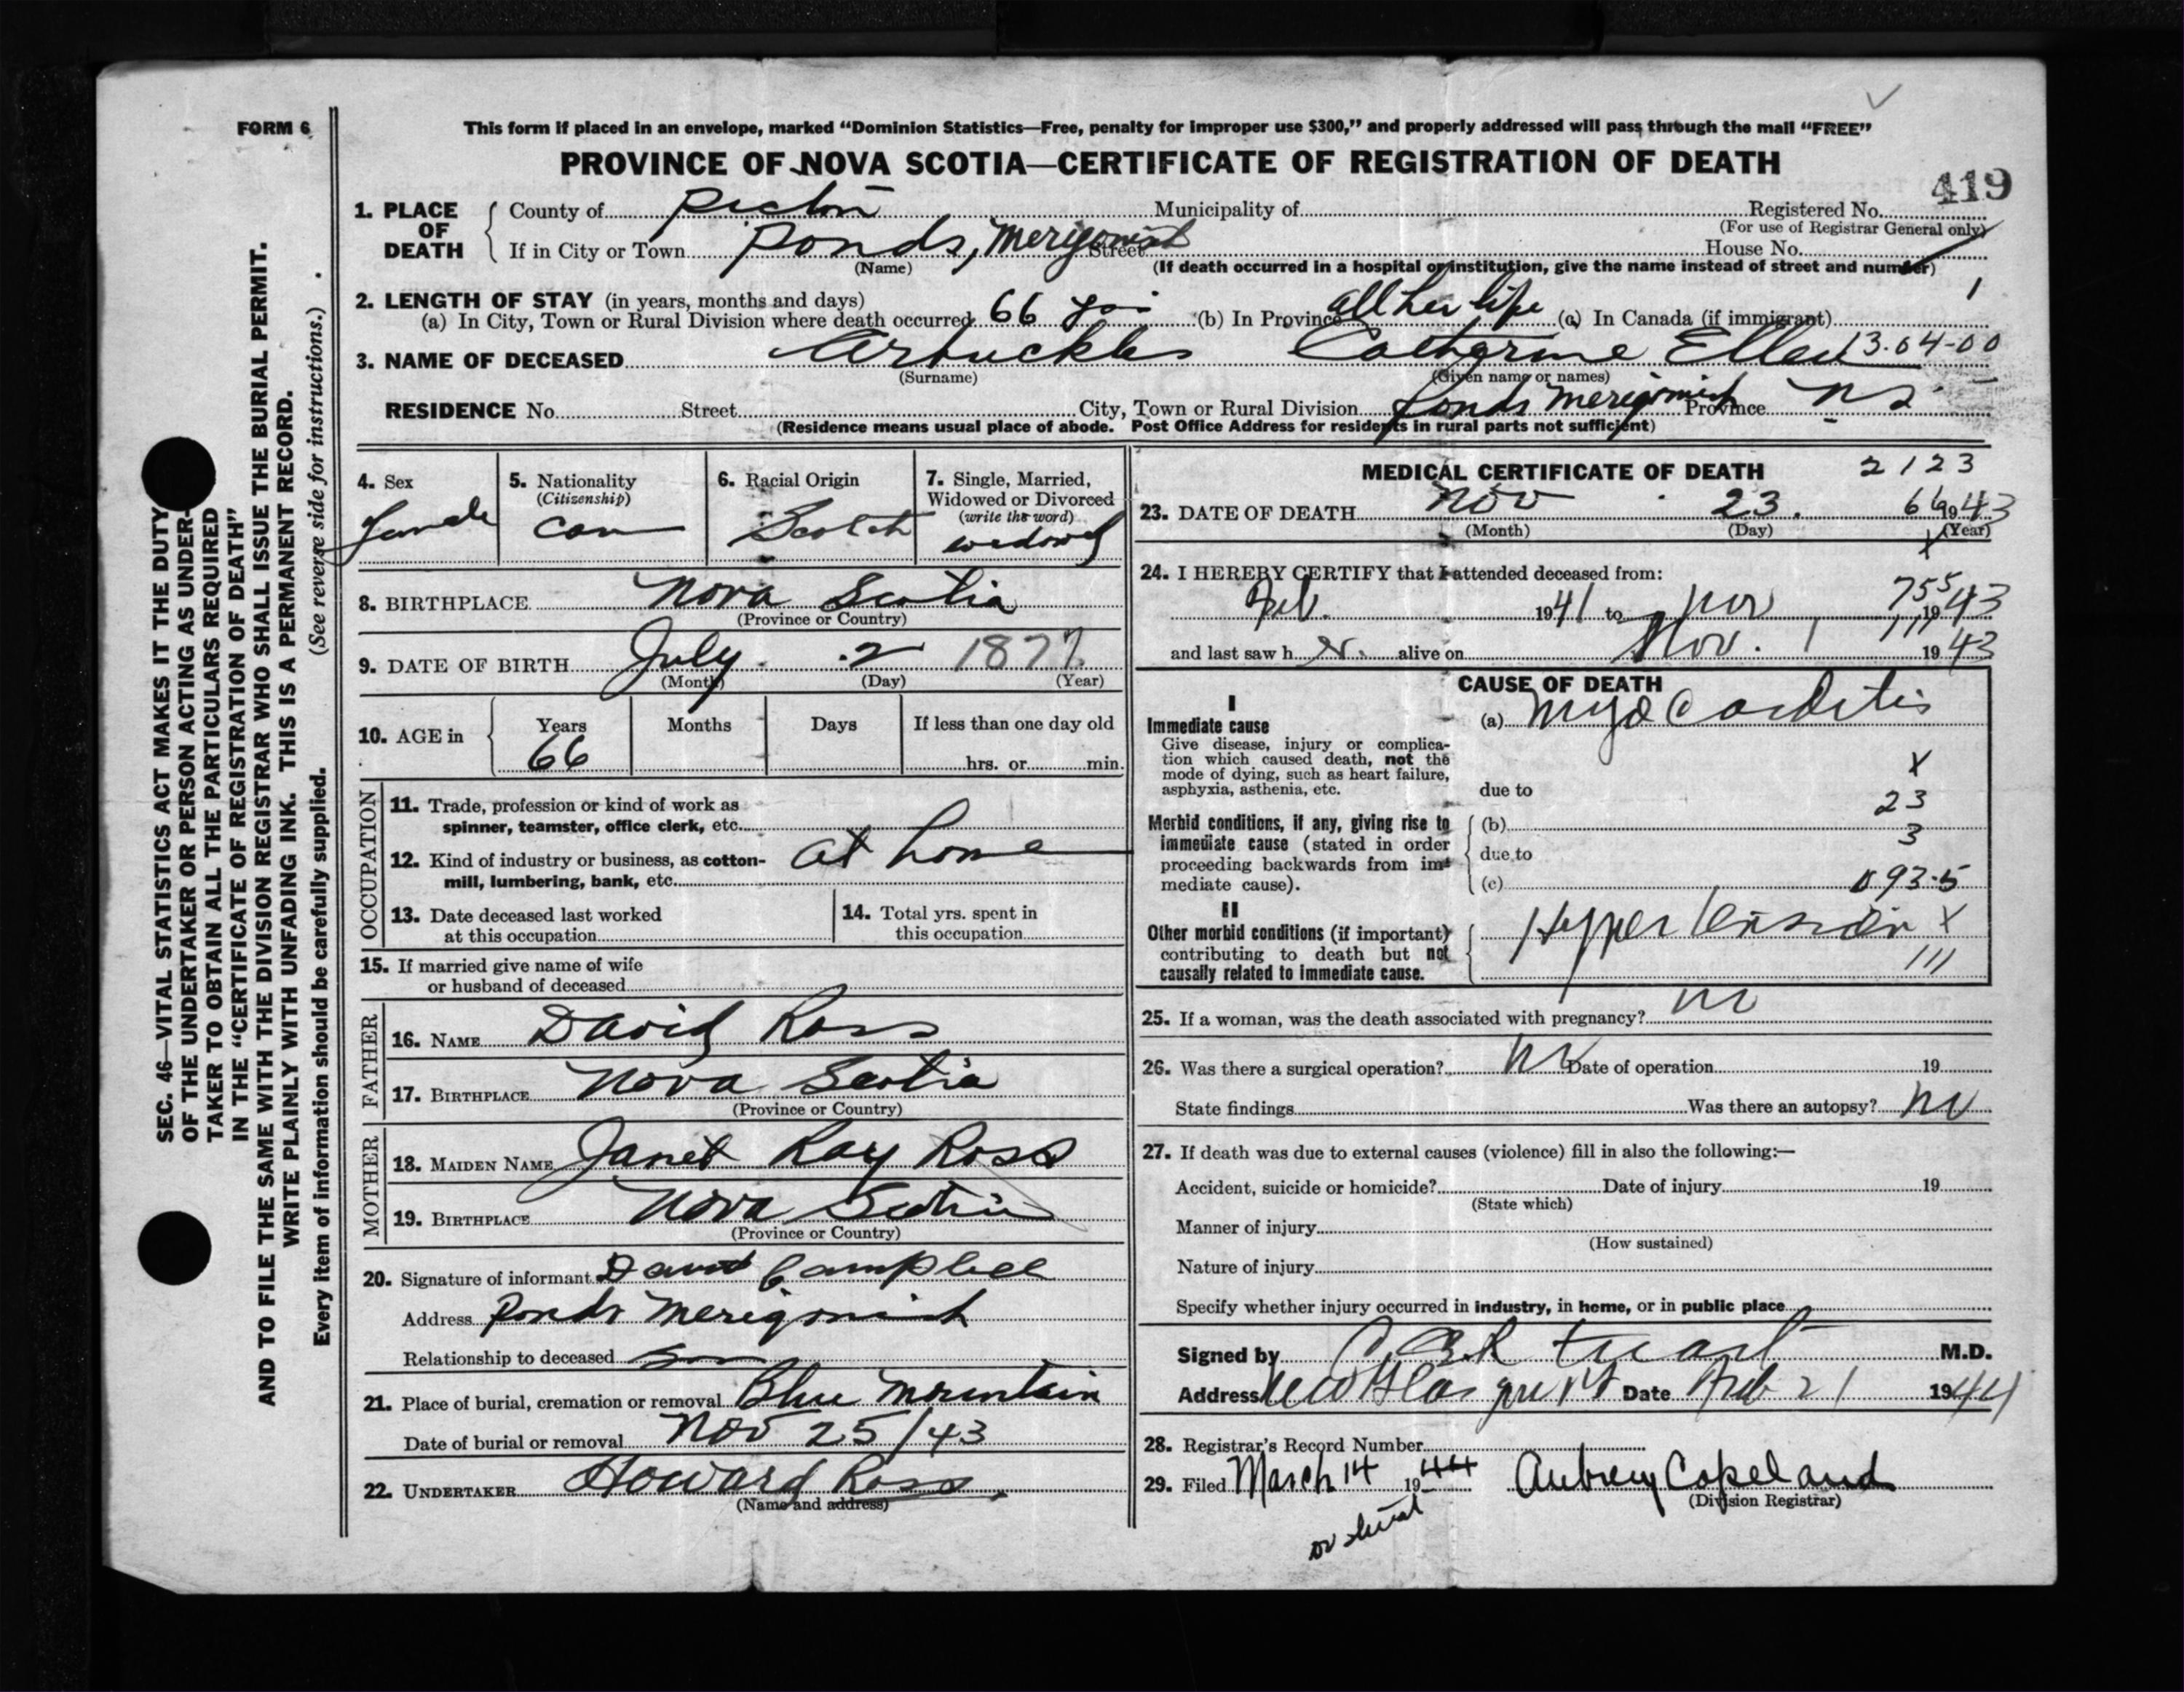 FORM 6
This form if placed in an envelope, marked “Dominion Statistics—Free, penalty for improper use $300,” and properly addressed will pass through the mail “FREE”
PROVINCE OF NOVA SCOTIA—CERTIFICATE OF REGISTRATION OF DEATH
419
1. PLACE OF DEATH
County of Pictou Municipality of Registered No.
(For use of Registrar General only)
If in City or Town Ponds, Merigomish Street House No.
(Name) (If death occurred in a hospital or institution, give the name instead of street and number)
2. LENGTH OF STAY (in years, months and days)
(a) In City, Town or Rural Division where death occurred 66 yrs (b) In Province all her life (c) In Canada (if immigrant) 1
3. NAME OF DECEASED Arbuckles Catherine Ellen 13-04-00
(Surname) (Given name or names)
RESIDENCE No. Street City, Town or Rural Division Ponds Merigomish Province NS
(Residence means usual place of abode. Post Office Address for residents in rural parts not sufficient)
4. Sex
Female
5. Nationality
(Citizenship)
Can
6. Racial Origin
Scotch
7. Single, Married,
Widowed or Divorced
(write the word)
widowed
8. BIRTHPLACE Nova Scotia
(Province or Country)
9. DATE OF BIRTH July 2 1877
(Month) (Day) (Year)
10. AGE in
Years Months Days If less than one day old
66 hrs. or min.
OCCUPATION
11. Trade, profession or kind of work as
spinner, teamster, office clerk, etc.
12. Kind of industry or business, as cotton-
mill, lumbering, bank, etc. at home
13. Date deceased last worked
at this occupation
14. Total yrs. spent in
this occupation
15. If married give name of wife
or husband of deceased
FATHER
16. NAME David Ross
17. BIRTHPLACE Nova Scotia
(Province or Country)
MOTHER
18. MAIDEN NAME Janet Ray Ross
19. BIRTHPLACE Nova Scotia
(Province or Country)
20. Signature of informant David Campbell
Address Ponds Merigomish
Relationship to deceased Son
21. Place of burial, cremation or removal Blue Mountain
Date of burial or removal Nov 25/43
22. UNDERTAKER Howard Ross
(Name and address)
MEDICAL CERTIFICATE OF DEATH 2123
23. DATE OF DEATH Nov 23. 66 1943
(Month) (Day) (Year)
X
24. I HEREBY CERTIFY that I attended deceased from:
755
Feb. 1941 to Nov 1943
111
and last saw h er alive on Nov. 1 1943
CAUSE OF DEATH
I
Immediate cause
Give disease, injury or complica-
tion which caused death, not the
mode of dying, such as heart failure,
asphyxia, asthenia, etc.
(a) Myocarditis
X
due to
23
Morbid conditions, if any, giving rise to
immediate cause (stated in order
proceeding backwards from im-
mediate cause).
(b)
3
due to
(c) 093.5
II
Other morbid conditions (if important)
contributing to death but not
causally related to immediate cause.
Hypertension X
111
25. If a woman, was the death associated with pregnancy? no
26. Was there a surgical operation? no Date of operation 19
State findings Was there an autopsy? no
27. If death was due to external causes (violence) fill in also the following:—
Accident, suicide or homicide? Date of injury 19
(State which)
Manner of injury
(How sustained)
Nature of injury
Specify whether injury occurred in industry, in home, or in public place
Signed by M.D.
Address New Glasgow NS Date Feb 21 1944
28. Registrar's Record Number
29. Filed March 14 1944 Aubrey Copeland
(Division Registrar)
SEC. 46—VITAL STATISTICS ACT MAKES IT THE DUTY
OF THE UNDERTAKER OR PERSON ACTING AS UNDER-
TAKER TO OBTAIN ALL THE PARTICULARS REQUIRED
IN THE “CERTIFICATE OF REGISTRATION OF DEATH”
AND TO FILE THE SAME WITH THE DIVISION REGISTRAR WHO SHALL ISSUE THE BURIAL PERMIT.
WRITE PLAINLY WITH UNFADING INK. THIS IS A PERMANENT RECORD.
Every item of information should be carefully supplied. (See reverse side for instructions.)